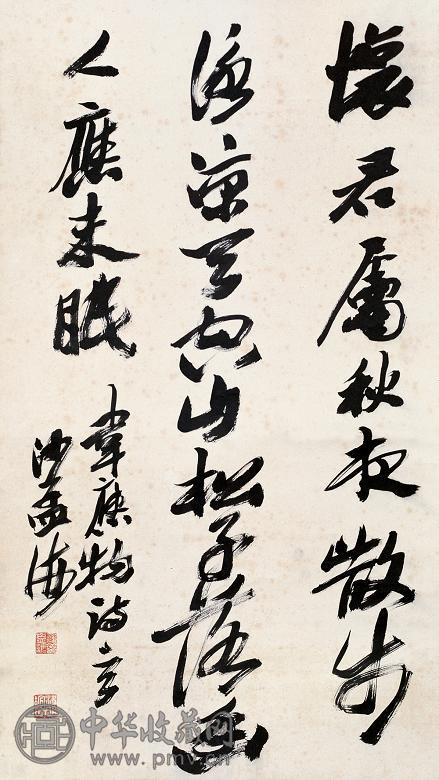 懷君屬秋夜散步
詠涼天空山松子落幽
人應未眠
韋應物詩
沙孟海
中华收藏网
www.pmv.cn